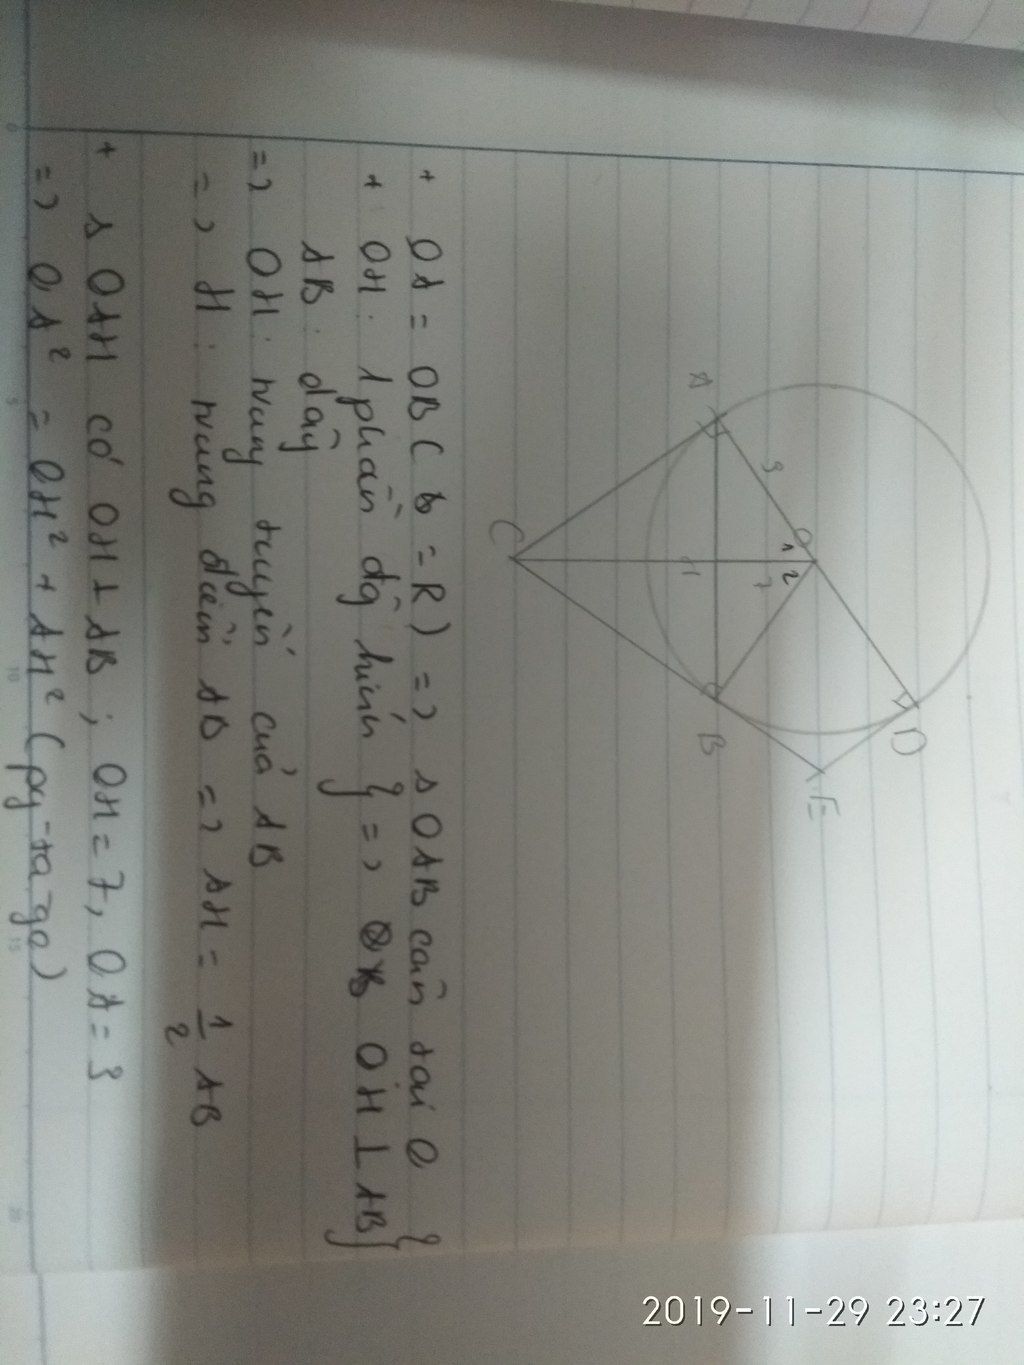 A
9
O
1
2
7
H
C
B
D
E
+ OA = OB ( = R) => Δ OAB cân tại O }
+ OH : 1 phần đg kính } => OH ⊥ AB }
AB : dây
=> OH : trung tuyến của AB
=> H : trung điểm AB => AH = 1/2 AB
+ Δ OAH có OH ⊥ AB ; OH = 7, OA = 9
=> OA² = OH² + AH² ( py-ta-go )
2019-11-29 23:27